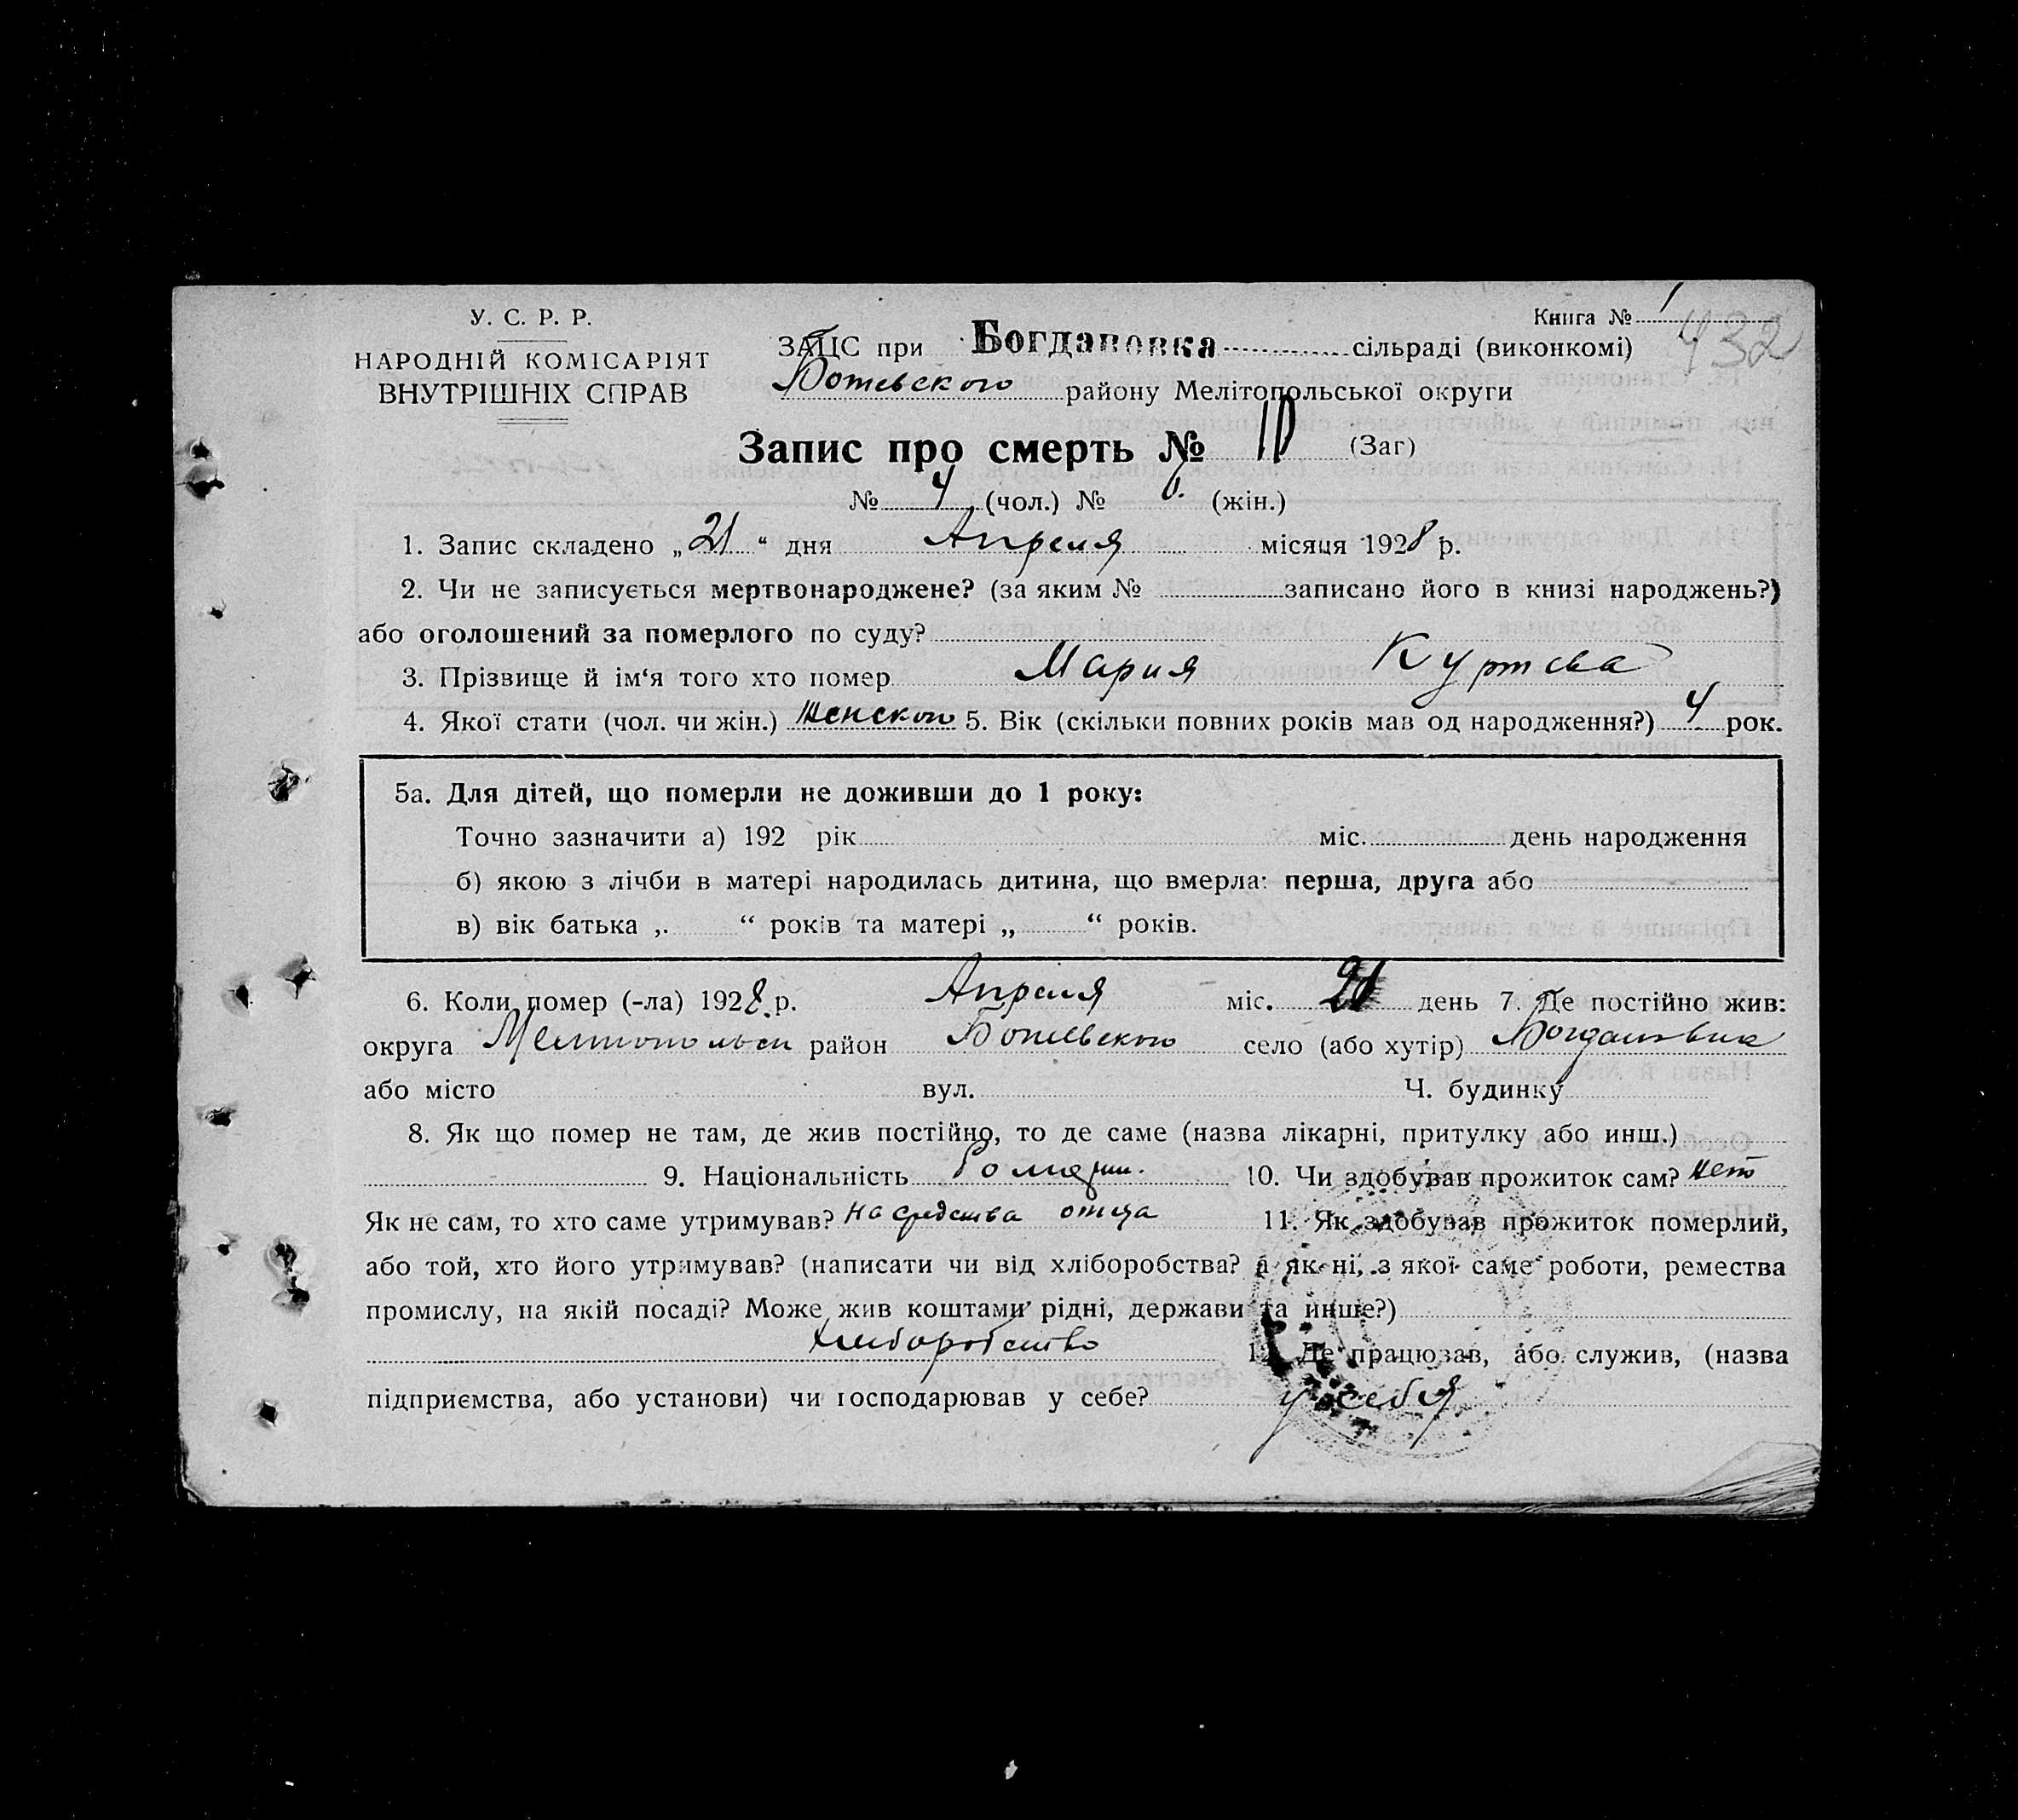 У. С. Р. Р.
НАРОДНІЙ КОМІСАРІЯТ
ВНУТРІШНІХ СПРАВ
Книга № 1
432
ЗАГС при Богдановка сільраді (виконкомі)
Ботевского району Мелітопольської округи
Запис про смерть № 10 (Заг)
№ 4 (чол.) № 6. (жін.)
1. Запис складено „21“ дня Апреля місяця 1928 р.
2. Чи не записується мертвонароджене? (за яким № записано його в книзі народжень?)
або оголошений за померлого по суду?
3. Прізвище й ім‘я того хто помер Мария Куртева
4. Якої стати (чол. чи жін.) Женского 5. Вік (скільки повних років мав од народження?) 4 рок.
5а. Для дітей, що померли не доживши до 1 року:
Точно зазначити а) 192 рік міс. день народження
б) якою з лічби в матері народилась дитина, що вмерла: перша, друга або
в) вік батька „ “ років та матері „ “ років.
6. Коли помер (-ла) 1928 р. Апреля міс. день 7. Де постійно жив:
округа Мелитопольск район Ботевского село (або хутір) Богдановка
або місто вул. Ч. будинку
8. Як що помер не там, де жив постійно, то де саме (назва лікарні, притулку або инш.)
9. Національність 10. Чи здобував прожиток сам? Нет
Як не сам, то хто саме утримував? На средства отца 11. Як здобував прожиток померлий,
або той, хто його утримував? (написати чи від хліборобства? а як ні, з якої саме роботи, ремества
промислу, на якій посаді? Може жив коштами рідні, держави та инше?)
хлиборобство 12. Де працював, або служив, (назва
підприємства, або установи) чи господарював у себе? у себя